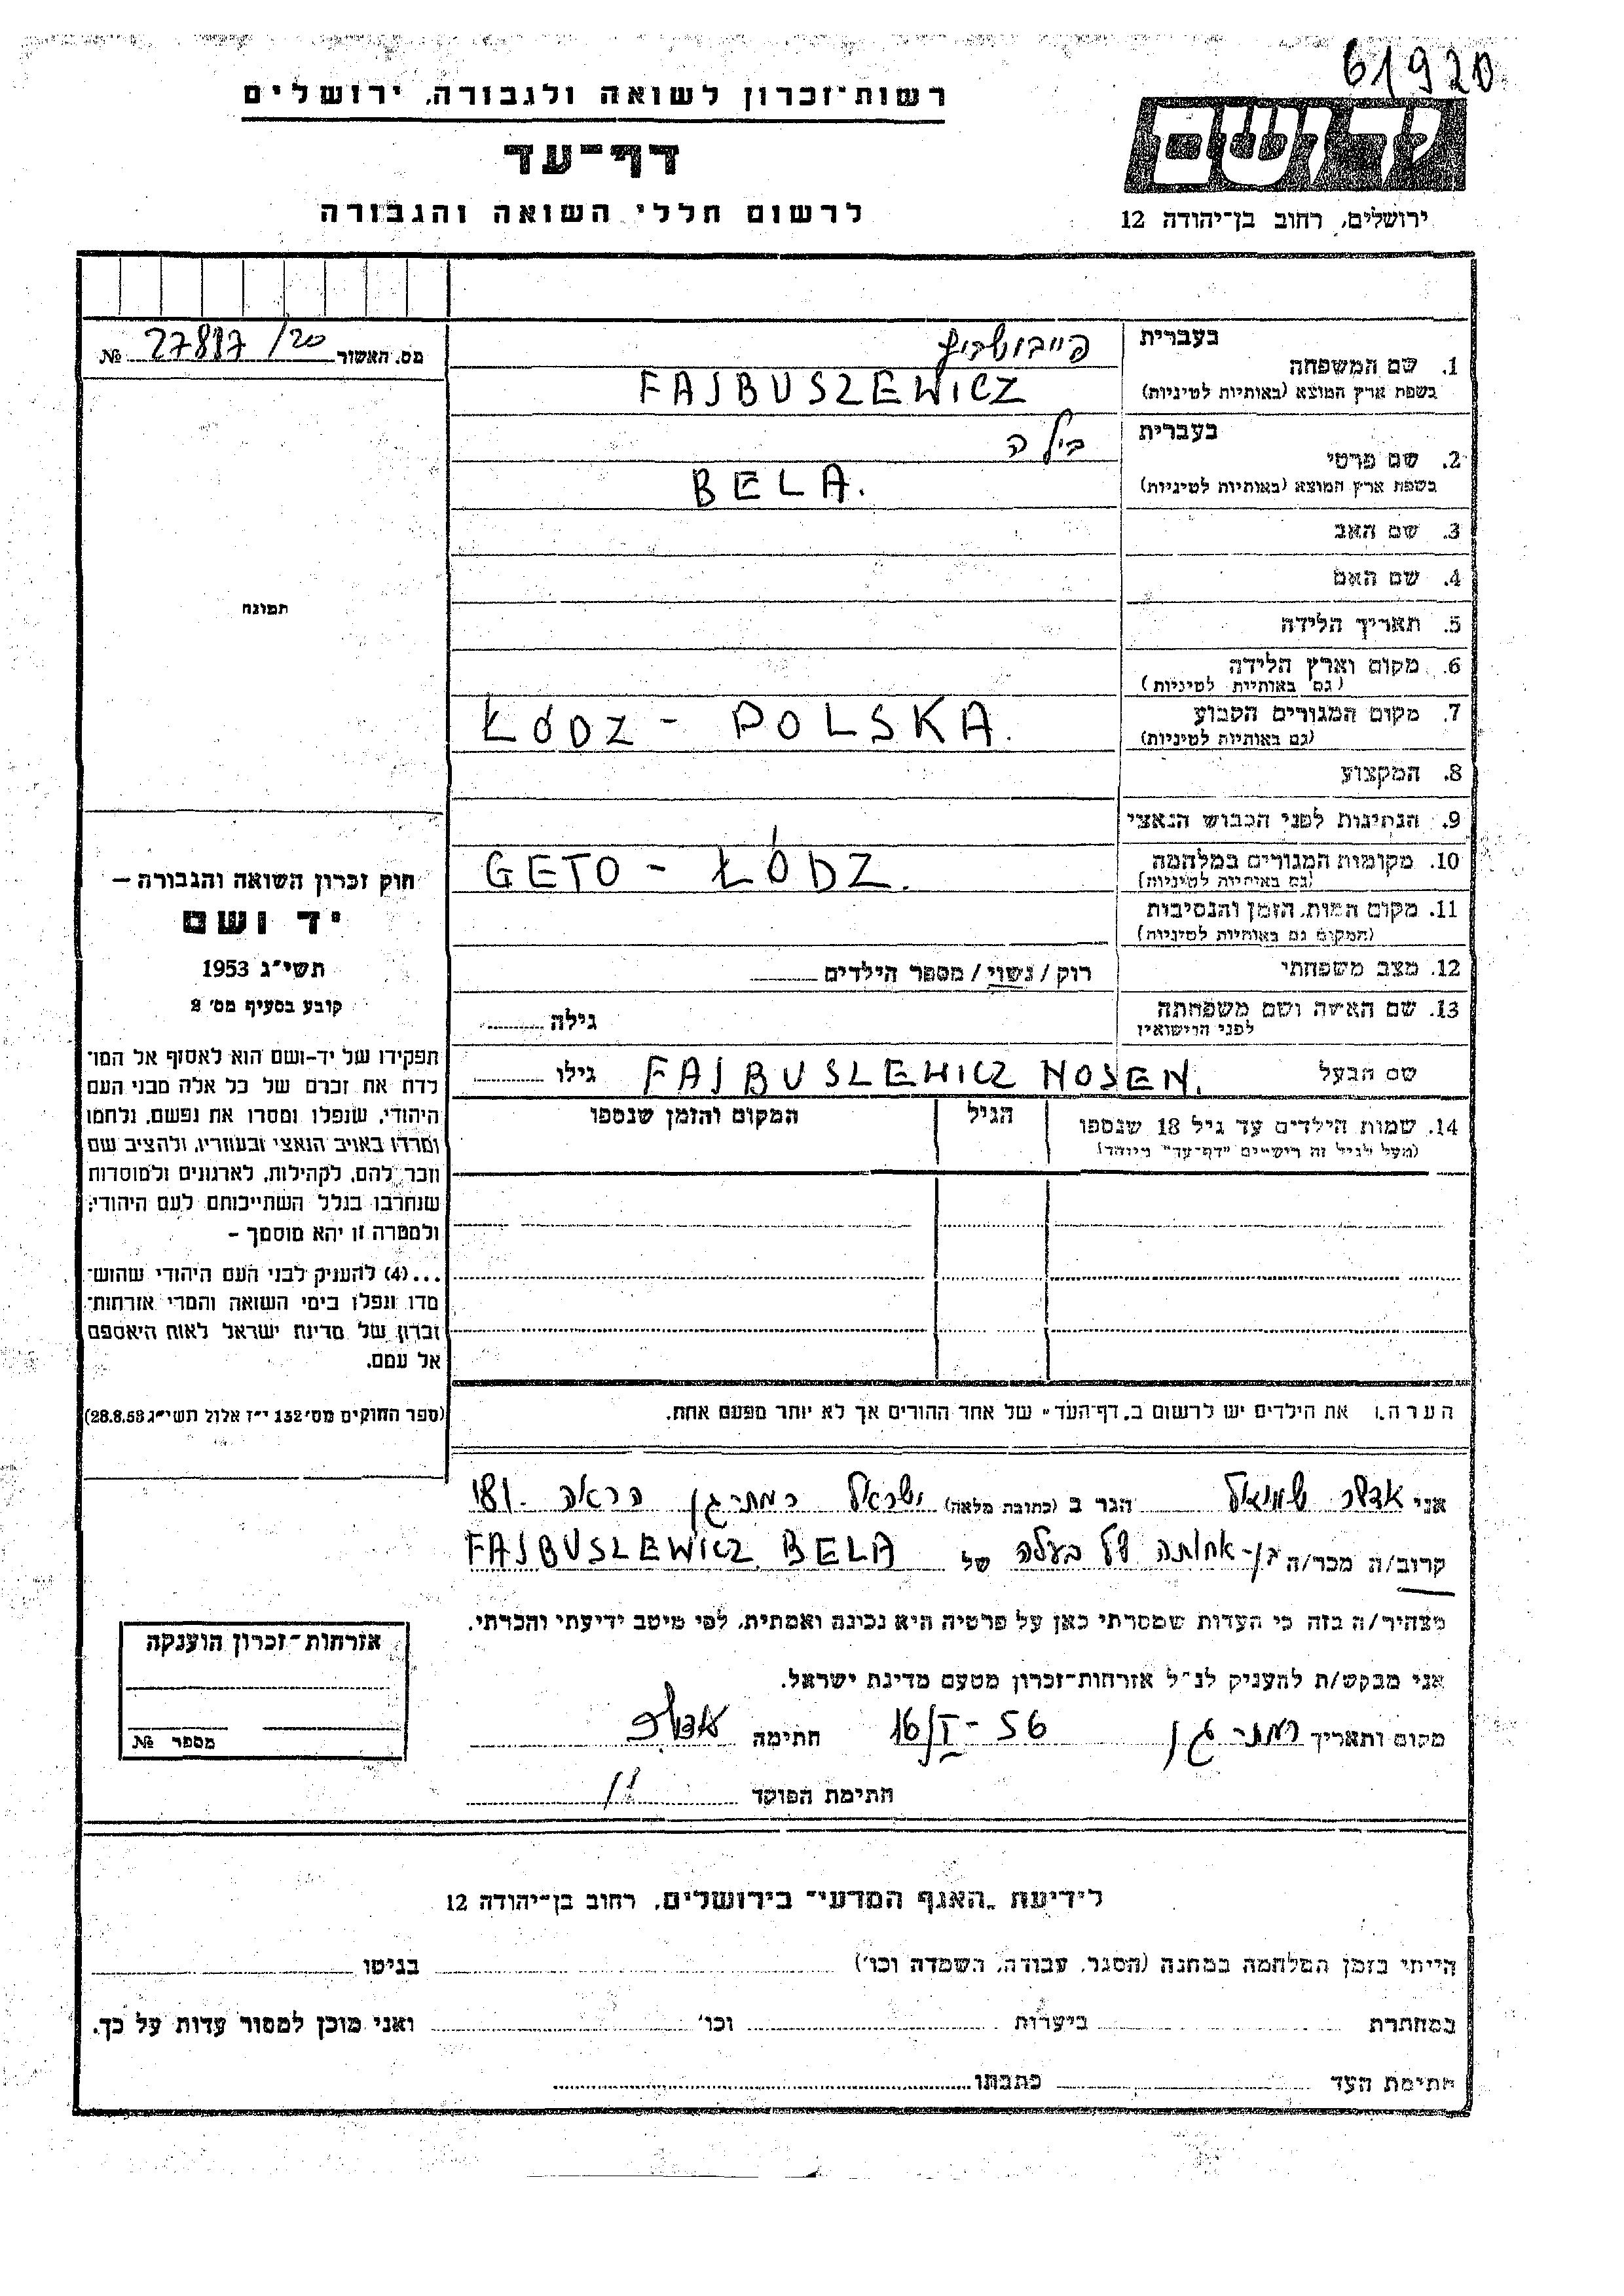 61920
רשות-זכרון לשואה ולגבורה, ירושלים
יד ושם
דף-עד
לרשום חללי השואה והגבורה
ירושלים, רחוב בן-יהודה 12
מס. האשור 27817/20 №
בעברית
1. שם המשפחה
בשפת ארץ המוצא (באותיות לטיניות)
פייבושביץ
FAJBUSZEWICZ
בעברית
2. שם פרטי
בשפת ארץ המוצא (באותיות לטיניות)
בילה
BELA.
3. שם האב
4. שם האם
5. תאריך הלידה
6. מקום וארץ הלידה
(גם באותיות לטיניות)
7. מקום המגורים הקבוע
(גם באותיות לטיניות)
ŁÓDZ - POLSKA.
8. המקצוע
9. הנתינות לפני הכבוש הנאצי
10. מקומות המגורים במלחמה
(גם באותיות לטיניות)
GETO - ŁÓDZ.
11. מקום המות, הזמן והנסיבות
(המקום גם באותיות לטיניות)
12. מצב משפחתי
רוק / נשוי / מספר הילדים
13. שם האשה ושם משפחתה
לפני הנישואין
גילה
שם הבעל FAJBUSLEWICZ NOSEN. גילו
14. שמות הילדים עד גיל 18 שנספו
(מעל לגיל זה רישיים "דף-עד" מיוחד)
הגיל
המקום והזמן שנספו
תמונה
חוק זכרון השואה והגבורה –
יד ושם
תשי"ג 1953
קובע בסעיף מס' 2
תפקידו של יד-ושם הוא לאסוף אל המו־
לדת את זכרם של כל אלה מבני העם
היהודי, שנפלו ומסרו את נפשם, נלחמו
ומרדו באויב הנאצי ובעוזריו, ולהציב שם
וזכר להם, לקהילות, לארגונים ולמוסדות
שנחרבו בגלל השתייכותם לעם היהודי;
ולמטרה זו יהא מוסמך –
...(4) להעניק לבני העם היהודי שהוש־
מדו ונפלו בימי השואה והמרי אזרחות־
זכרון של מדינת ישראל לאות היאספם
אל עמם.
(ספר החוקים מס' 132 י"ז אלול תשי"ג 28.8.53)
הערה: את הילדים יש לרשום ב"דף-העד" של אחד ההורים אך לא יותר מפעם אחת.
אני אדלר שמואל הגר ב (כתובת מלאה) ישראל רמת-גן הראה 181
קרוב/ה מכר/ה בן-אחותה של בעלה של FAJBUSLEWICZ BELA
מצהיר/ה בזה כי העדות שמסרתי כאן על פרטיה היא נכונה ואמתית, לפי מיטב ידיעתי והכרתי.
אני מבקש/ת להעניק לנ"ל אזרחות-זכרון מטעם מדינת ישראל.
מקום ותאריך רמת-גן 16/I-56 חתימה
חתימת הפוקד
אזרחות-זכרון הוענקה
מספר №
לידיעת "האגף המדעי" בירושלים, רחוב בן-יהודה 12
הייתי בזמן המלחמה במחנה (הסגר, עבודה, השמדה וכו') בגיטו
במחתרת ביערות וכו' ואני מוכן למסור עדות על כך.
חתימת העד כתבתו